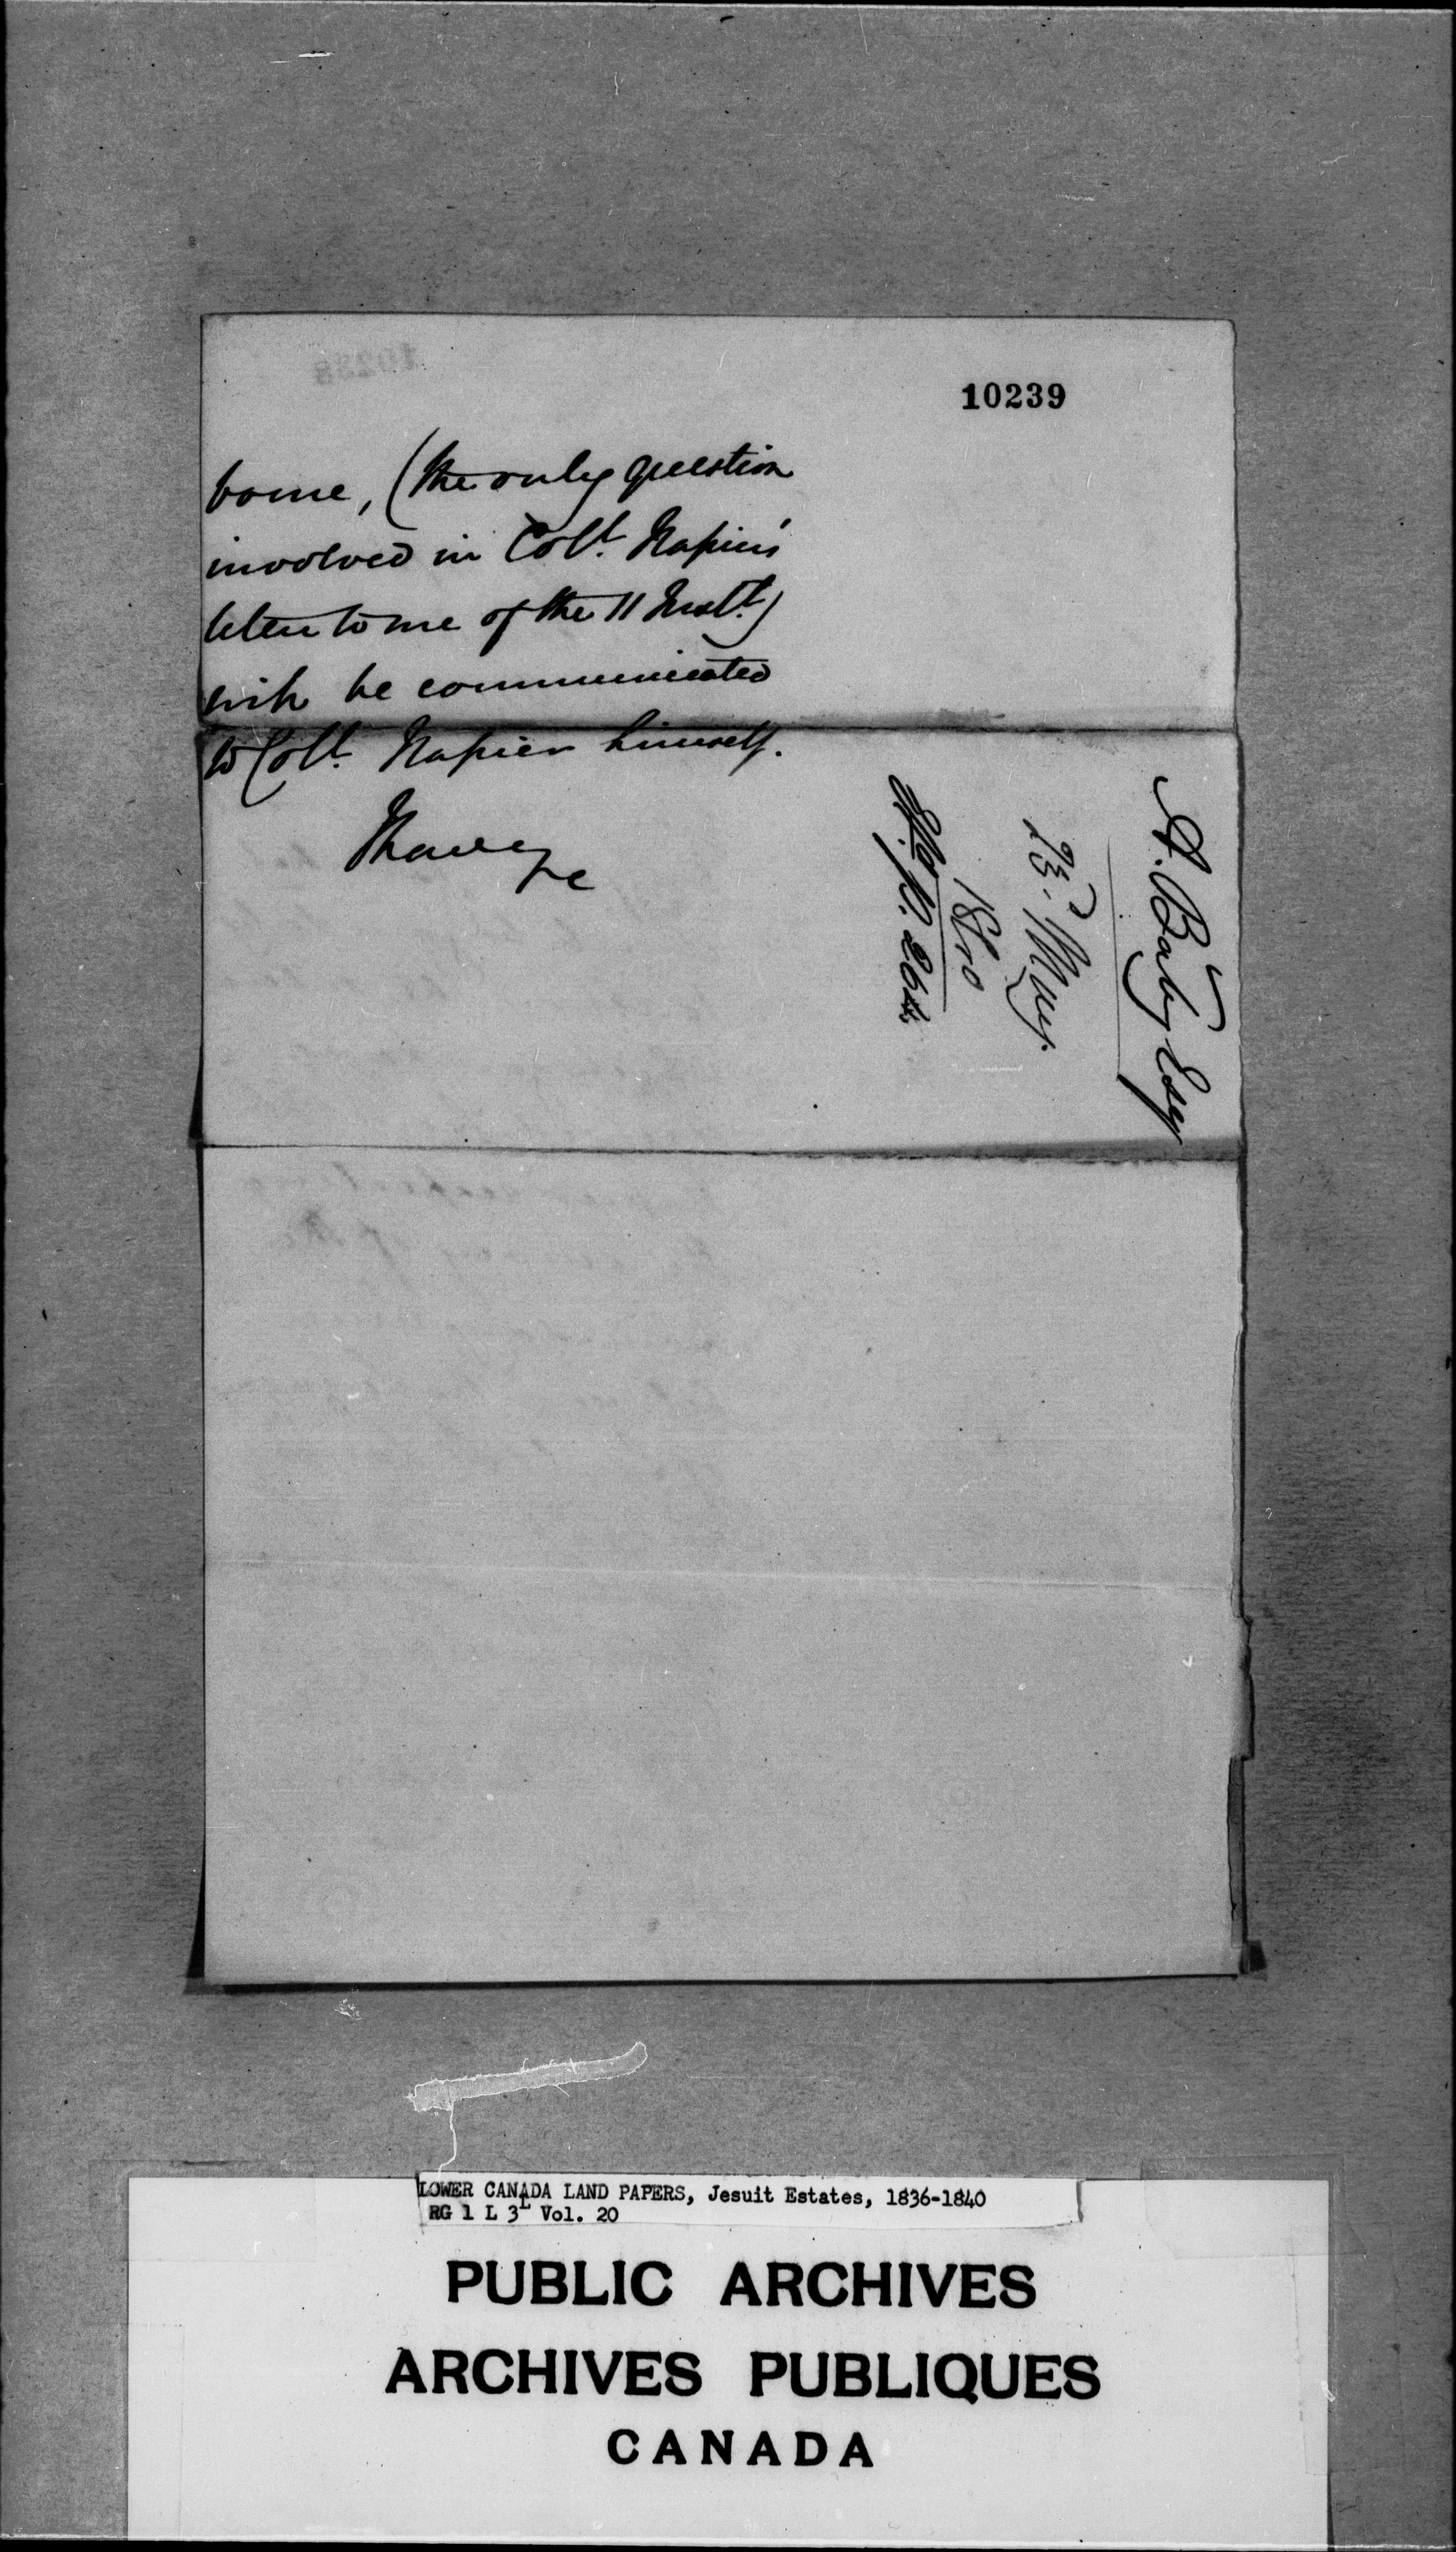 10239
borne, (the only question
involved in Coll. Napier's
letter to me of the 11 Inst.)
will be communicated
to Coll. Napier himself.
I have &c
A. Baby Esq
23d May.
1840
p. 264.
LOWER CANADA LAND PAPERS, Jesuit Estates, 1836-1840
RG 1 L 3L Vol. 20
PUBLIC ARCHIVES
ARCHIVES PUBLIQUES
CANADA